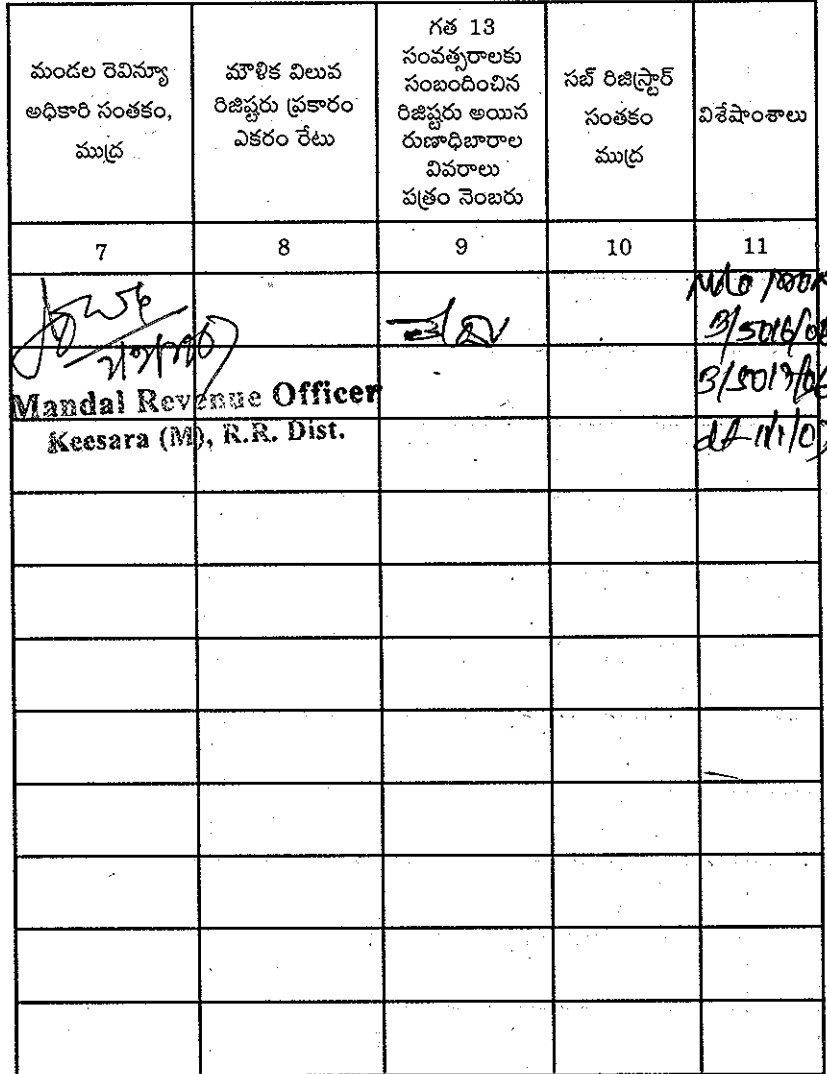 మండల రెవిన్యూ
అధికారి సంతకం,
ముద్ర
మౌళిక విలువ
రిజిష్టరు ప్రకారం
ఎకరం రేటు
గత 13
సంవత్సరాలకు
సంబందించిన
రిజిష్టరు అయిన
రుణాధిబారాల
వివరాలు
పత్రం నెంబరు
సబ్ రిజిస్ట్రార్
సంతకం
ముద్ర
విశేషాంశాలు
7 8 9 10 11
B/5016/06
Mandal Revenue Officer
Keesara (M), R.R. Dist.